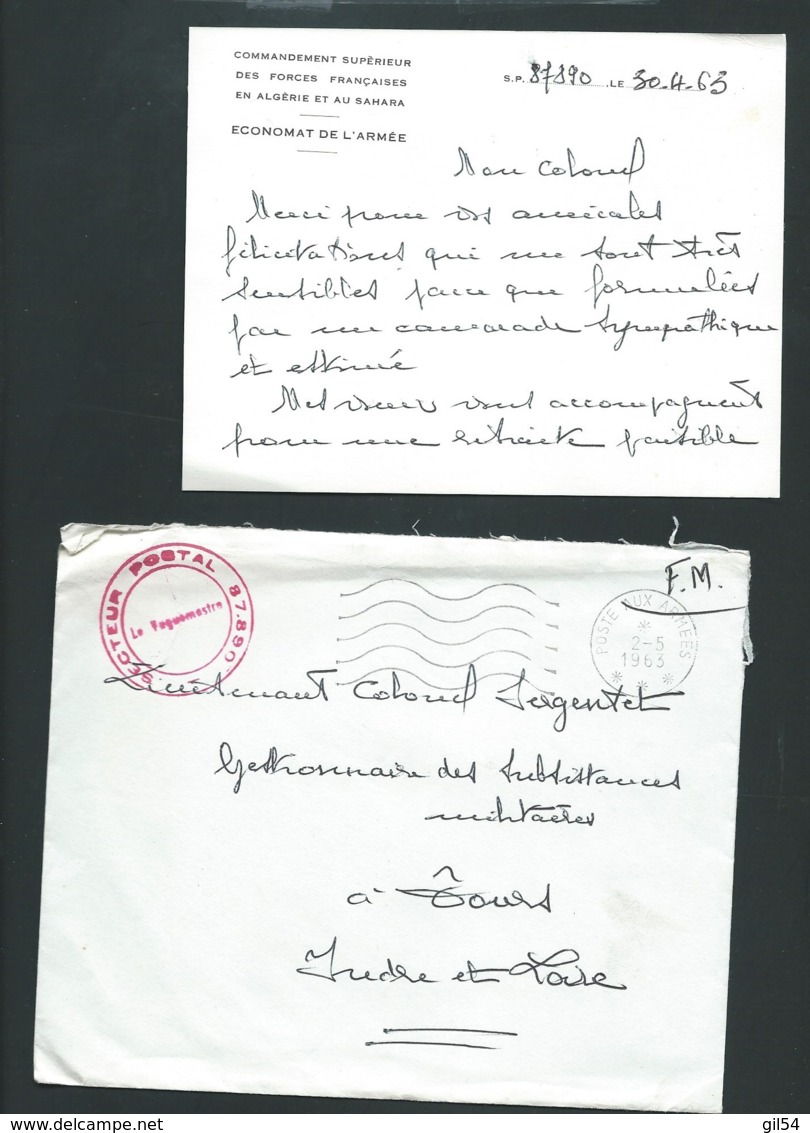 COMMANDEMENT SUPÈRIEUR
DES FORCES FRANÇAISES
EN ALGÈRIE ET AU SAHARA
ECONOMAT DE L'ARMÉE
S.P. 87890 LE 30.4.63
Mon Colonel
Merci pour vos amicales
félicitations qui me sont très
sensibles parce que formulées
par un camarade sympathique
et estimé
Mes voeux vous accompagnent
pour une retraite paisible
SECTEUR POSTAL 87.890
Le Vaguemestre
F.M.
POSTE AUX ARMÉES
2-5
1963
Lieutenant Colonel Sergentet
Gestionnaire des Subsistances
militaires
à Tours
Indre et Loire
gil54